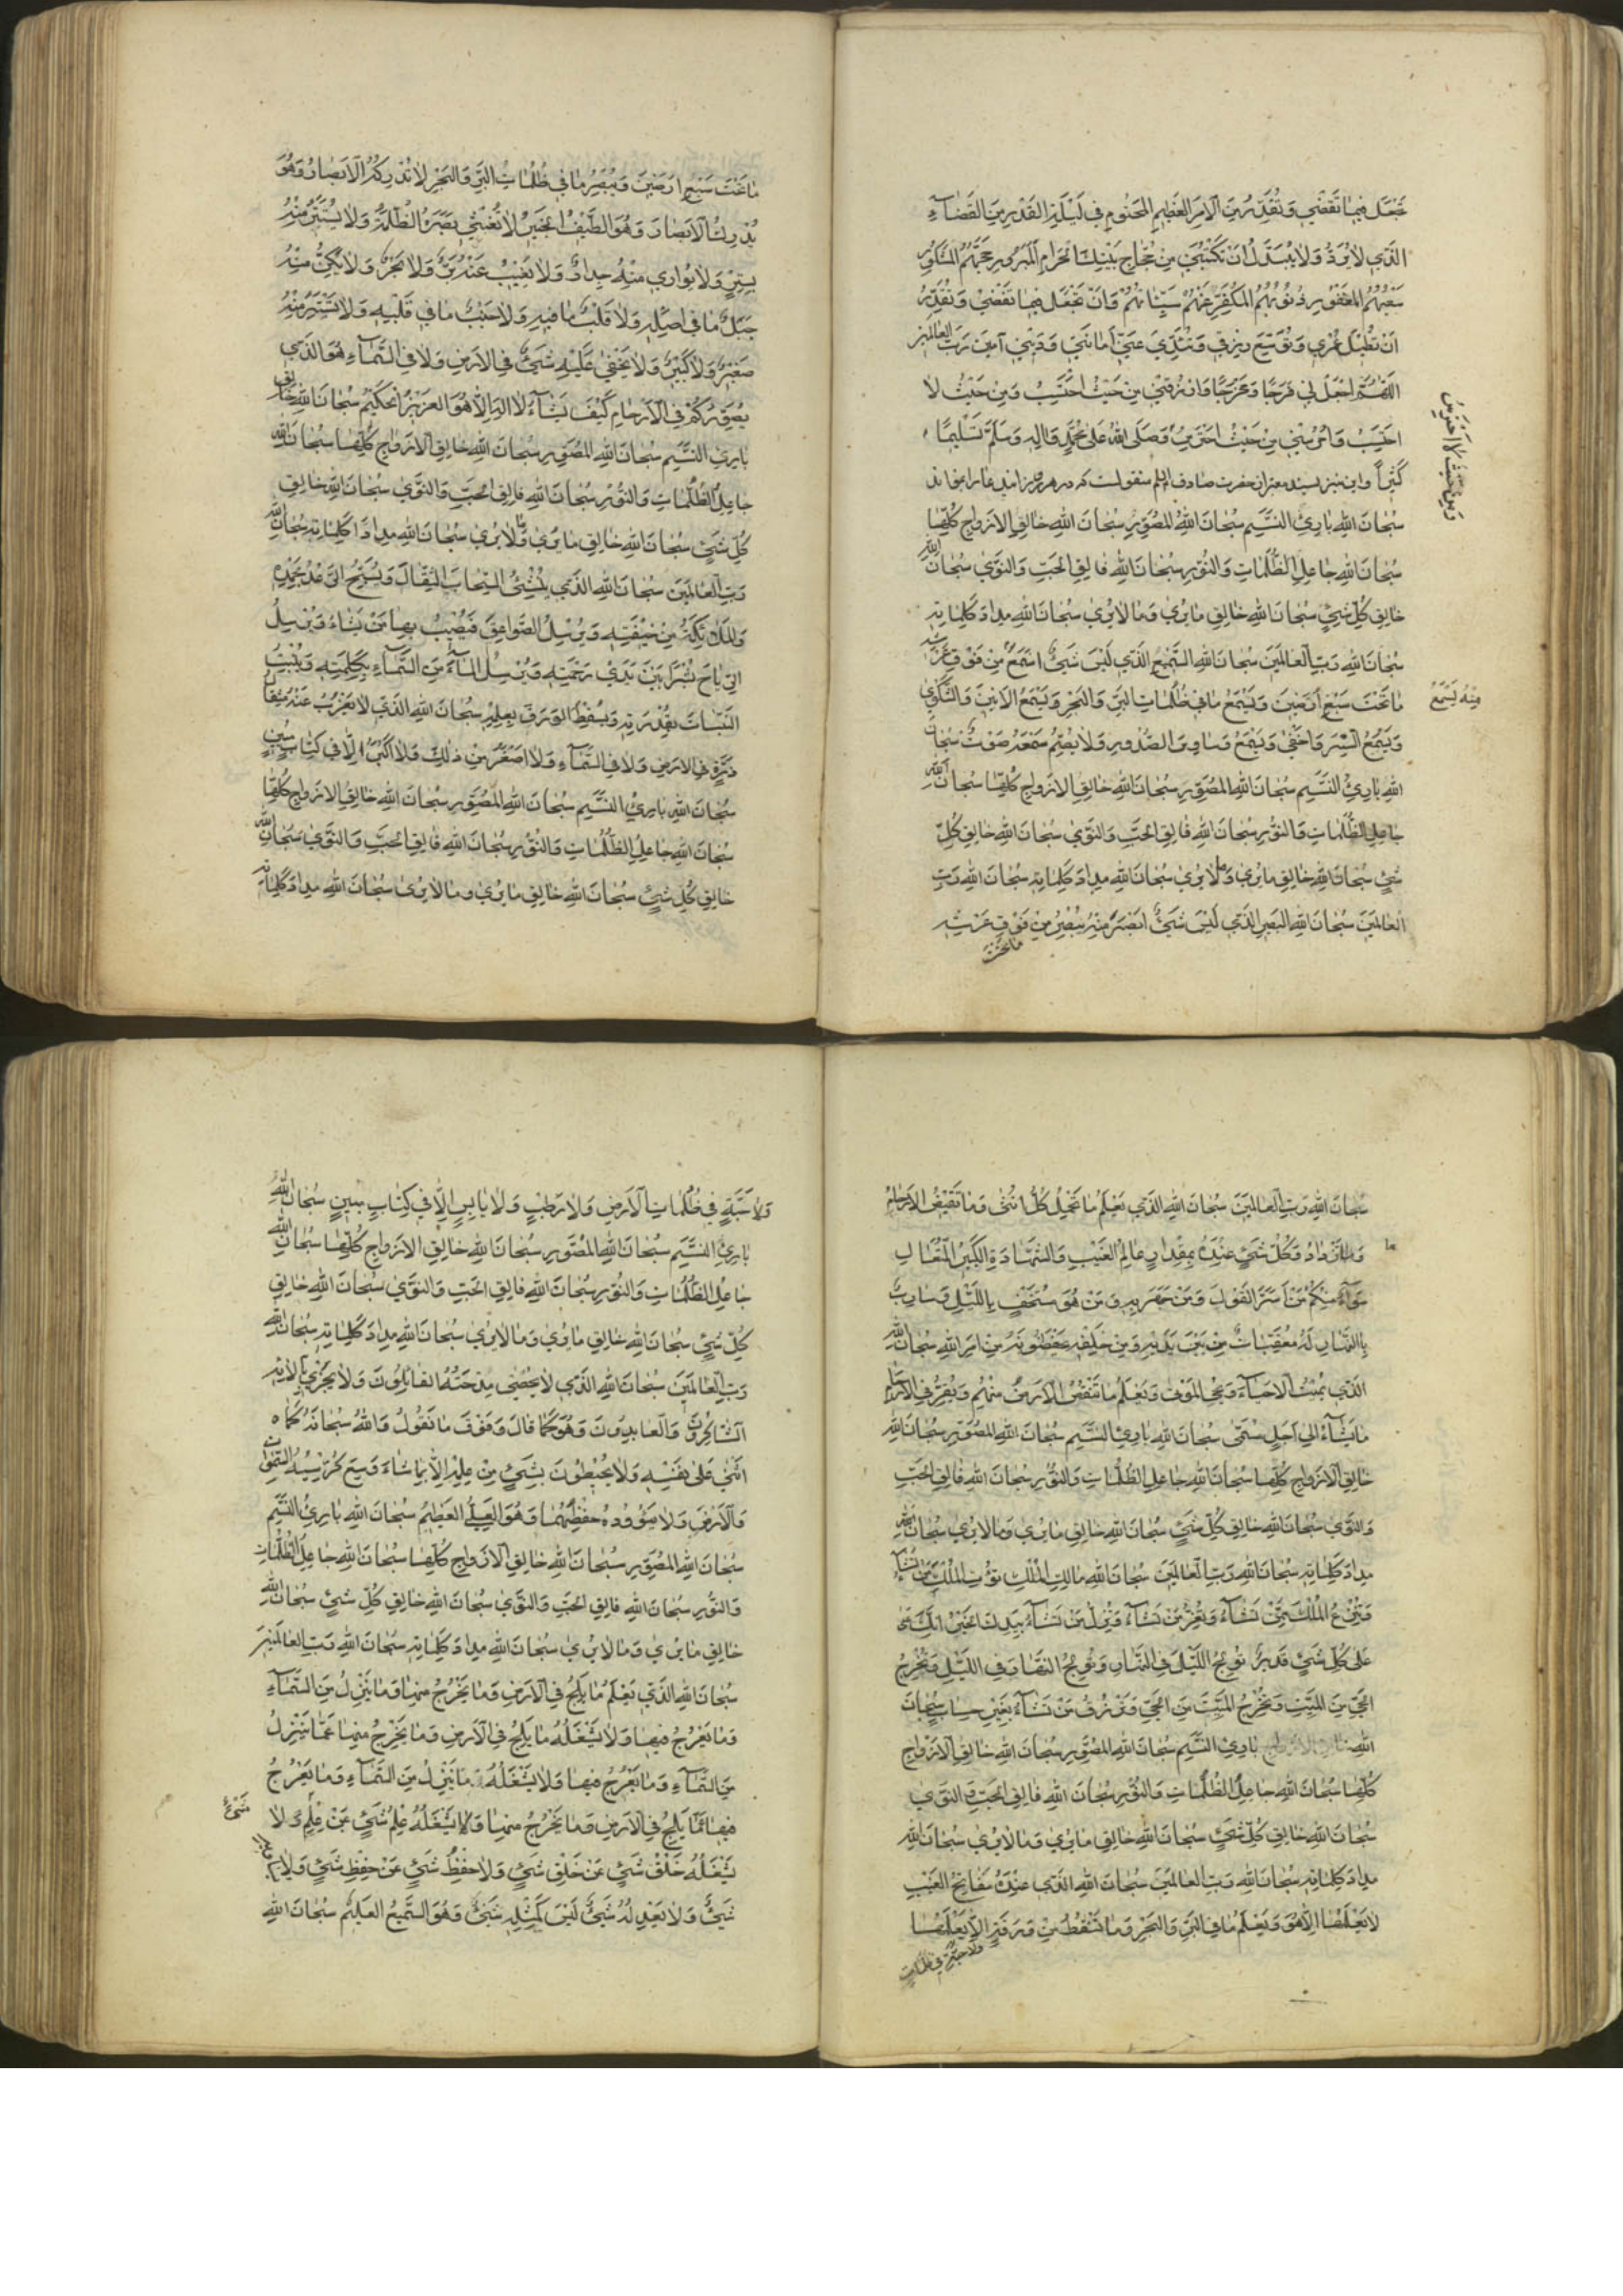 تجعل فيما تقضي وتقدر من الامر العظيم المحتوم في ليلة القدر من القضاء
الذي لا يرد ولا يبدل ان تكتبني من حجاج بيتك الحرام المبرور حجهم المشكور
سعيهم المغفور ذنوبهم المكفر عنهم سيئاتهم وان تجعل فيما تقضي وتقدر
ان تطيل عمري وتوسع رزقي وتؤدي عني امانتي وديني آمين رب العالمين
اللهم اجعل لي فرجا ومخرجا وارزقني من حيث احتسب ومن حيث لا
احتسب واحرسني من حيث احترس وصلى الله على محمد واله وسلم تسليما
ومن حيث لا احترس
كثيرا واين نيز بسند معتبر از حضرت صادق منقولست كه در هر روز اين دعا را بخواند
سبحان الله بارئ النسم سبحان الله المصور سبحان الله خالق الازواج كلها
سبحان الله جاعل الظلمات والنور سبحان الله فالق الحب والنوى سبحان الله
خالق كل شيء سبحان الله خالق ما يرى وما لا يرى سبحان الله مداد كلماته
سبحان الله رب العالمين سبحان الله السميع الذي ليس شيء اسمع من فوق عرشه
منه يسمع
ما تحت سبع ارضين ويسمع ما في ظلمات البر والبحر ويسمع الانين والشكوى
ويسمع السر واخفى ويسمع وساوس الصدور ولا يصم سمعه صوت سبحان
الله بارئ النسم سبحان الله المصور سبحان الله خالق الازواج كلها سبحان الله
جاعل الظلمات والنور سبحان الله فالق الحب والنوى سبحان الله خالق كل
شيء سبحان الله خالق ما يرى وما لا يرى سبحان الله مداد كلماته سبحان الله رب
العالمين سبحان الله البصير الذي ليس شيء ابصر منه يبصر من فوق عرشه
ما تحت
ما تحت سبع ارضين ويبصر ما في ظلمات البر والبحر لا تدركه الابصار وهو
يدرك الابصار وهو اللطيف الخبير لا تغشي بصره الظلمة ولا يستتر منه
بستر ولا يواري منه جدار ولا يغيب عنه بر ولا بحر ولا يكن منه
جبل ما في اصله ولا قلب ما فيه ولا جنب ما في قلبه ولا يستتر منه
صغير ولا كبير ولا يخفى عليه شيء في الارض ولا في السماء هو الذي
يصوركم في الارحام كيف يشاء لا اله الا هو العزيز الحكيم سبحان الله خالق
بارئ النسم سبحان الله المصور سبحان الله خالق الازواج كلها سبحان الله
جاعل الظلمات والنور سبحان الله فالق الحب والنوى سبحان الله خالق
كل شيء سبحان الله خالق ما يرى وما لا يرى سبحان الله مداد كلماته سبحان الله
رب العالمين سبحان الله الذي ينشئ السحاب الثقال ويسبح الرعد بحمده
والملائكة من خيفته ويرسل الصواعق فيصيب بها من يشاء ويرسل
الرياح بشرا بين يدي رحمته وينزل الماء من السماء بكلمته وينبت
النبات بقدرته ويسقط الورق بعلمه سبحان الله الذي لا يعزب عنه مثقال
ذرة في الارض ولا في السماء ولا اصغر من ذلك ولا اكبر الا في كتاب مبين
سبحان الله بارئ النسم سبحان الله المصور سبحان الله خالق الازواج كلها
سبحان الله جاعل الظلمات والنور سبحان الله فالق الحب والنوى سبحان الله
خالق كل شيء سبحان الله خالق ما يرى وما لا يرى سبحان الله مداد كلماته
سبحان الله رب العالمين سبحان الله الذي يعلم ما تحمل كل انثى وما تغيض الارحام
وما تزداد وكل شيء عنده بمقدار عالم الغيب والشهادة الكبير المتعال
ما
سواء منكم من اسر القول ومن جهر به ومن هو مستخف بالليل وسارب
بالنهار له معقبات من بين يديه ومن خلفه يحفظونه من امر الله سبحان الله
الذي يميت الاحياء ويحي الموتى ويعلم ما تنقص الارض منهم ويقر في الارحام
ما يشاء الى اجل مسمى سبحان الله بارئ النسم سبحان الله المصور سبحان الله
خالق الازواج كلها سبحان الله جاعل الظلمات والنور سبحان الله فالق الحب
والنوى سبحان الله خالق كل شيء سبحان الله خالق ما يرى وما لا يرى سبحان الله
مداد كلماته سبحان الله رب العالمين سبحان الله مالك الملك تؤتي الملك من تشاء
وتنزع الملك ممن تشاء وتعز من تشاء وتذل من تشاء بيدك الخير انك
على كل شيء قدير تولج الليل في النهار وتولج النهار في الليل وتخرج
الحي من الميت وتخرج الميت من الحي وترزق من تشاء بغير حساب سبحان
الله بارئ النسم سبحان الله المصور سبحان الله خالق الازواج
كلها سبحان الله جاعل الظلمات والنور سبحان الله فالق الحب والنوى
سبحان الله خالق كل شيء سبحان الله خالق ما يرى وما لا يرى سبحان الله
مداد كلماته سبحان الله رب العالمين سبحان الله الذي عنده مفاتح الغيب
لا يعلمها الا هو ويعلم ما في البر والبحر وما تسقط من ورقة الا يعلمها
ولا حبة في ظلمات
ولا حبة في ظلمات الارض ولا رطب ولا يابس الا في كتاب مبين سبحان الله
بارئ النسم سبحان الله المصور سبحان الله خالق الازواج كلها سبحان الله
جاعل الظلمات والنور سبحان الله فالق الحب والنوى سبحان الله خالق
كل شيء سبحان الله خالق ما يرى وما لا يرى سبحان الله مداد كلماته سبحان الله
رب العالمين سبحان الله الذي لا يحصي مدحته القائلون ولا يجزي بآلائه
الشاكرون والعابدون وهو كما قال وفوق ما نقول والله سبحانه كما
اثنى على نفسه ولا يحيطون بشيء من علمه الا بما شاء وسع كرسيه السموات
والارض ولا يؤوده حفظهما وهو العلي العظيم سبحان الله بارئ النسم
سبحان الله المصور سبحان الله خالق الازواج كلها سبحان الله جاعل الظلمات
والنور سبحان الله فالق الحب والنوى سبحان الله خالق كل شيء سبحان الله
خالق ما يرى وما لا يرى سبحان الله مداد كلماته سبحان الله رب العالمين
سبحان الله الذي يعلم ما يلج في الارض وما يخرج منها وما ينزل من السماء
وما يعرج فيها ولا يشغله ما يلج في الارض وما يخرج منها عما ينزل
من السماء وما يعرج فيها ولا يشغله ما ينزل من السماء وما يعرج
فيها عما يلج في الارض وما يخرج منها ولا يشغله علم شيء عن علم ولا
شيء
يشغله خلق شيء عن خلق شيء ولا حفظ شيء عن حفظ شيء ولا
شيء ولا يعدله شيء ليس كمثله شيء وهو السميع العليم سبحان الله